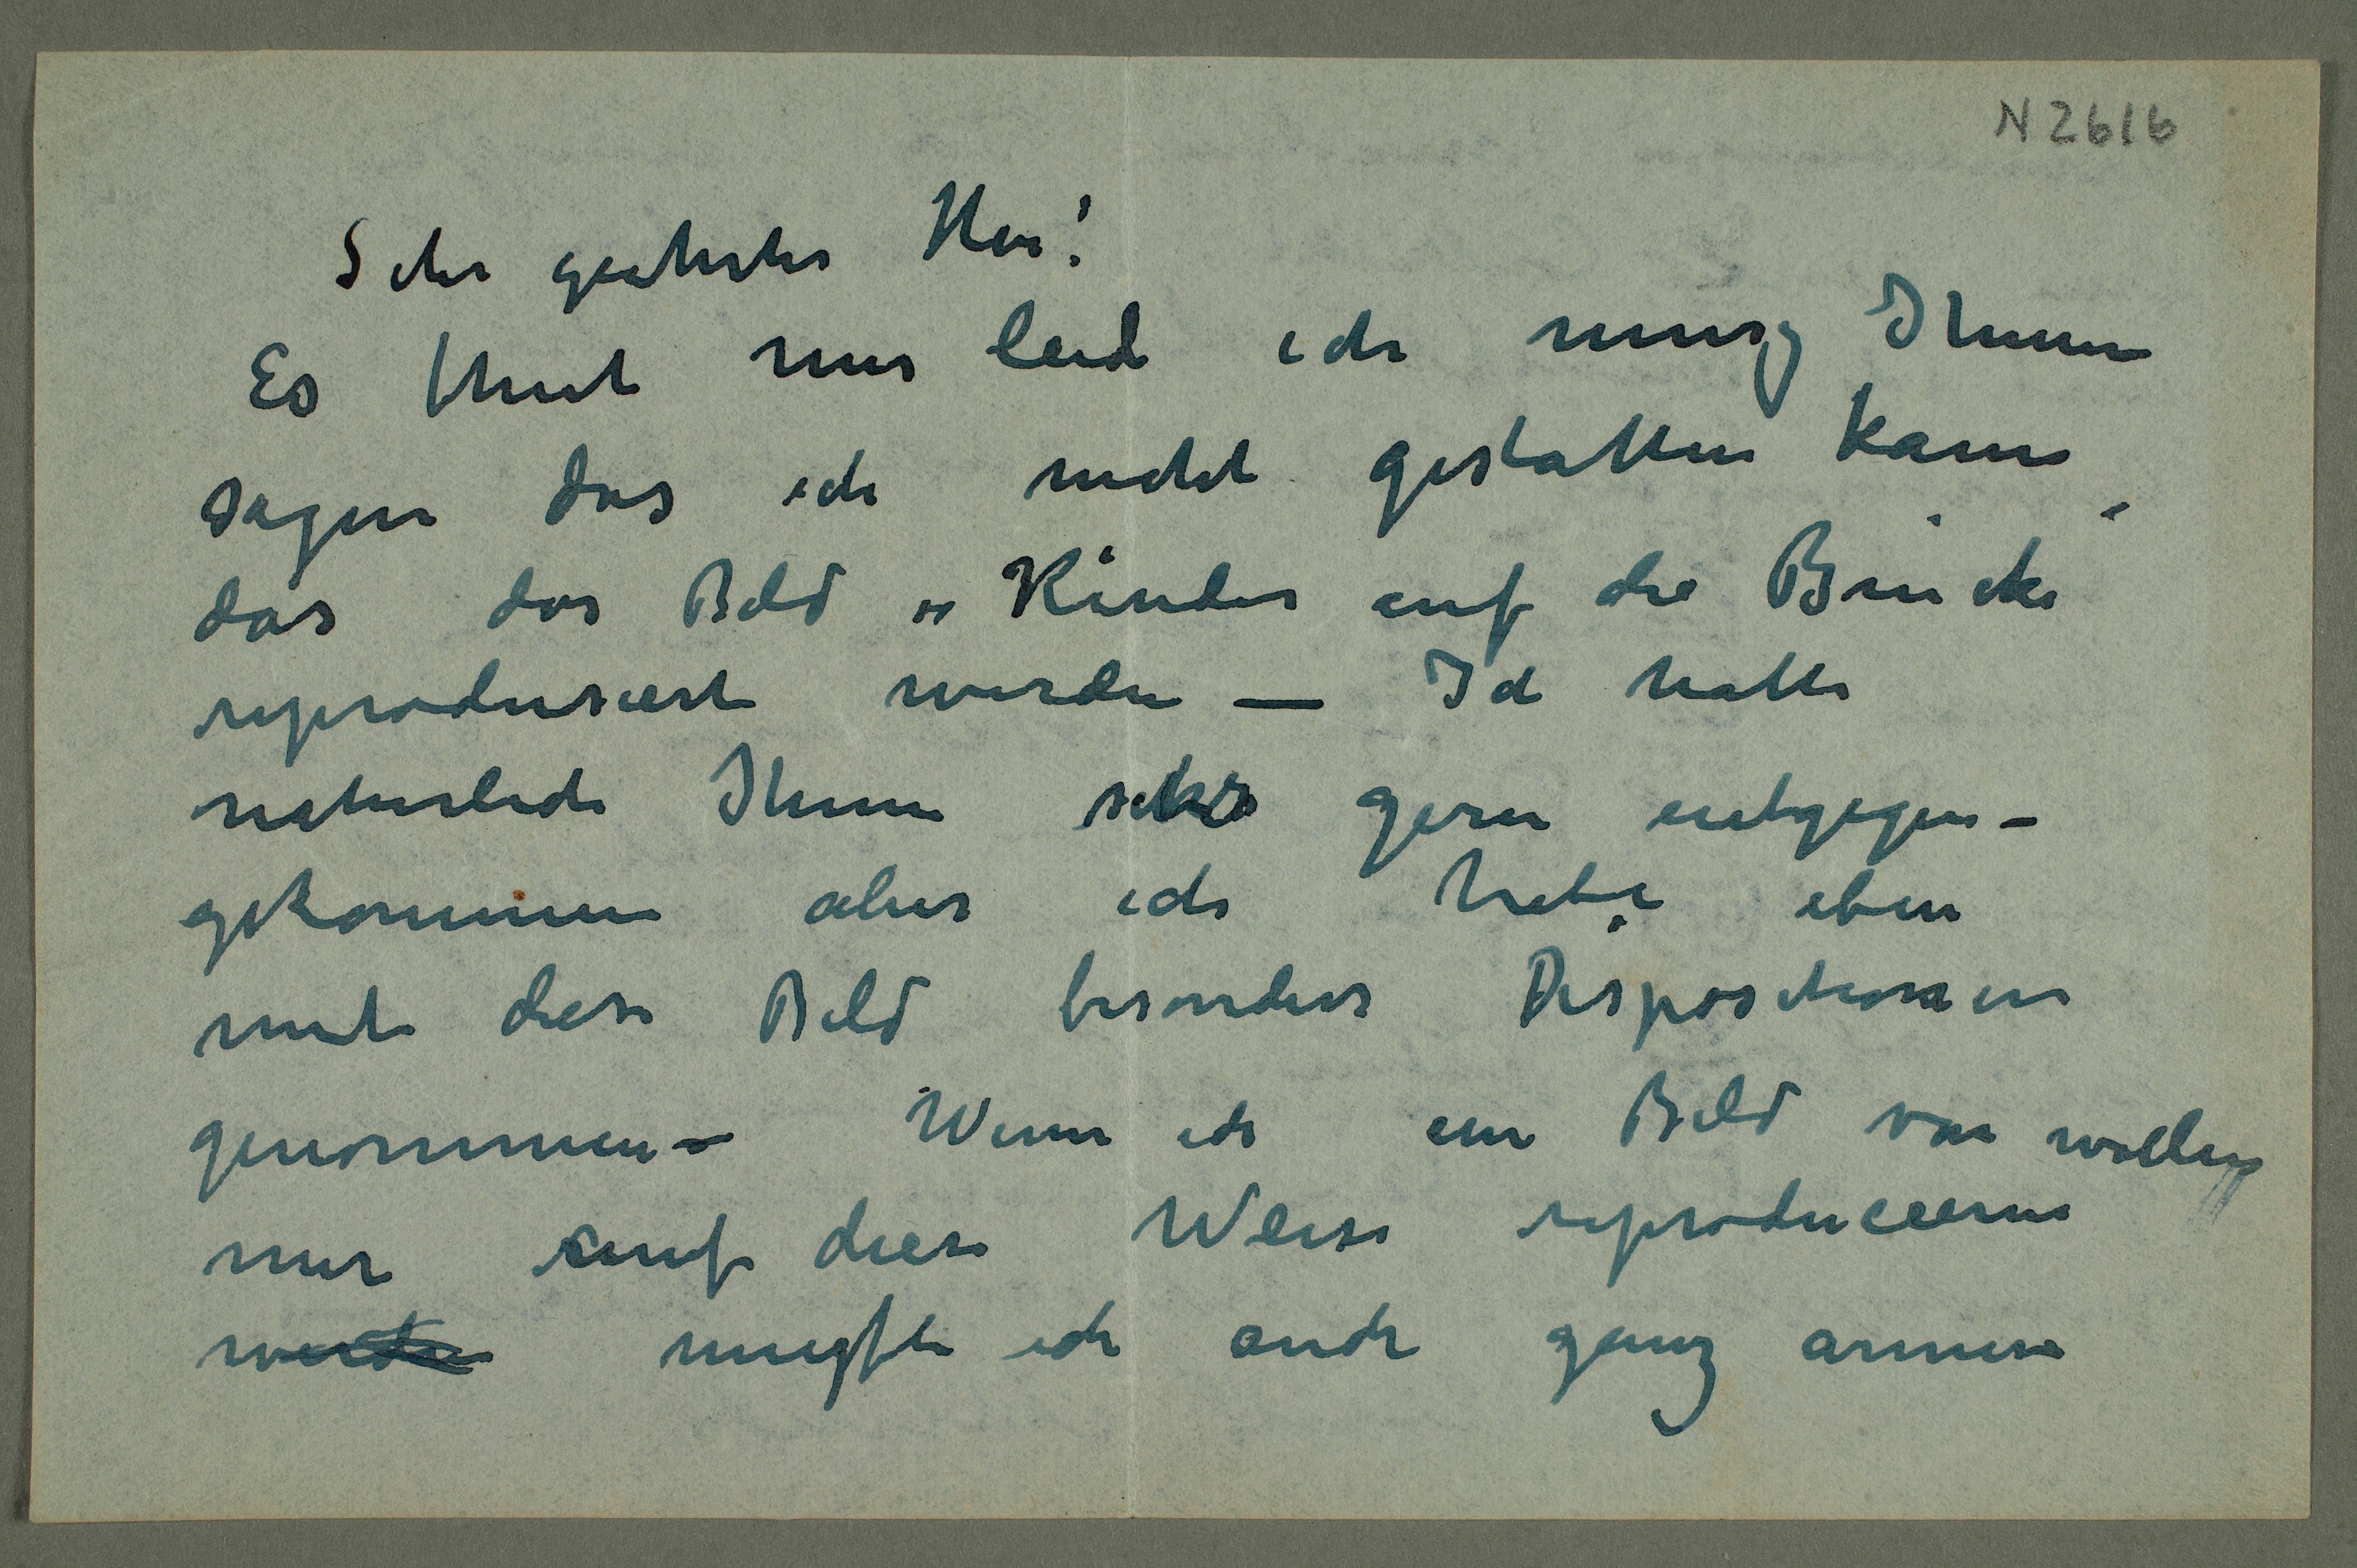 N 2616
Sehr geehrter Herr!
Es thut mir leid ich musz Ihnen
sagen das ich nicht gestatten kann
das das Bild „Kinder auf die Brücke“
reprodusiert werden — Ich hatte
naturlich Ihnen sehr gern entgegen-
gekommen aber ich habe eben
mit diese Bild besonders Dispositionen
genommen – Wenn ich ein Bild von wollen
mir auf diese Weise reproducieren
werden muszte ich auch ganz